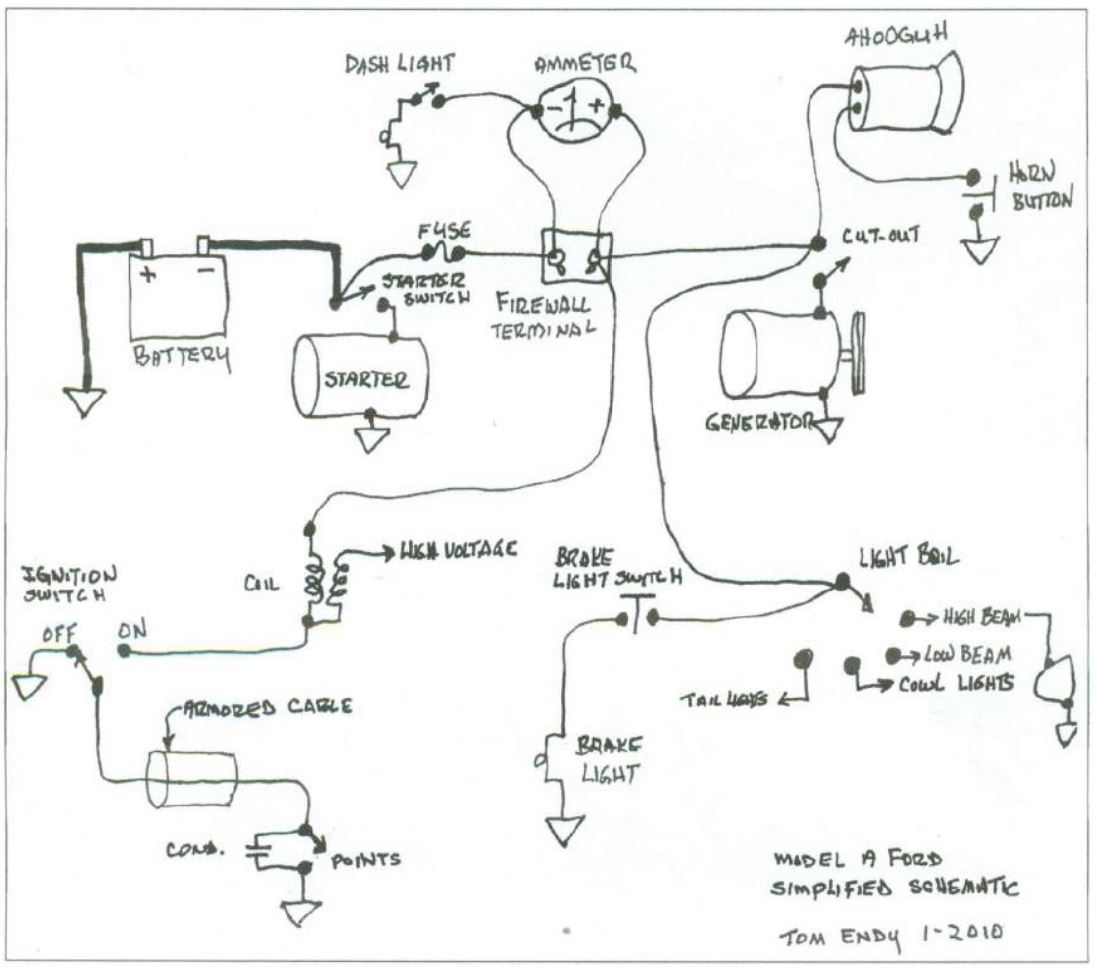 DASH LIGHT
AMMETER
AHOOGUH
- +
HORN
BUTTON
FUSE
CUT-OUT
+ -
STARTER
SWITCH
FIREWALL
TERMINAL
BATTERY
STARTER
GENERATOR
HIGH VOLTAGE
COIL
IGNITION
SWITCH
OFF
ON
BRAKE
LIGHT SWITCH
LIGHT BAIL
HIGH BEAM
LOW BEAM
COWL LIGHTS
TAIL LIGHTS
ARMORED CABLE
BRAKE
LIGHT
COND.
POINTS
MODEL A FORD
SIMPLIFIED SCHEMATIC
TOM ENDY 1-2010